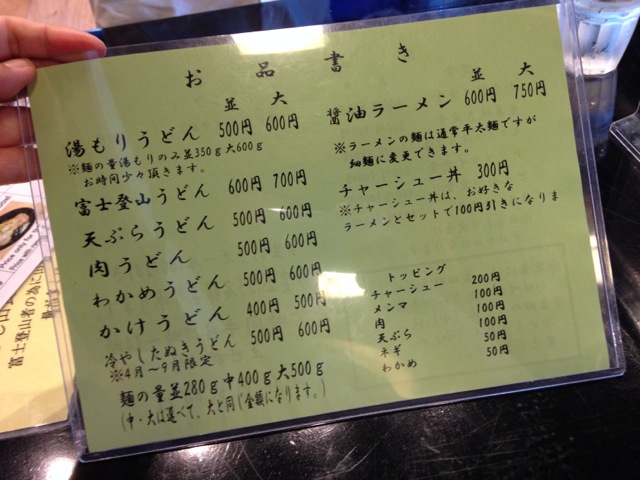 お品書き
並 大
湯もりうどん 500円 600円
※麺の量湯もりのみ並350g大600g
お時間少々頂きます。
富士登山うどん 600円 700円
天ぷらうどん 500円 600円
肉うどん 500円 600円
わかめうどん 500円 600円
かけうどん 400円 500円
冷やしたぬきうどん 500円 600円
※4月～9月限定
麺の量並280g中400g大500g
(中・大は選べて、大と同じ金額になります。)
並 大
醤油ラーメン 600円 750円
※ラーメンの麺は通常平太麺ですが
細麺に変更できます。
チャーシュー丼 300円
※チャーシュー丼は、お好きな
ラーメンとセットで100円引きになりま
トッピング
チャーシュー 200円
メンマ 100円
肉 100円
天ぷら 100円
ネギ 50円
わかめ 50円
富士登山者の冷に